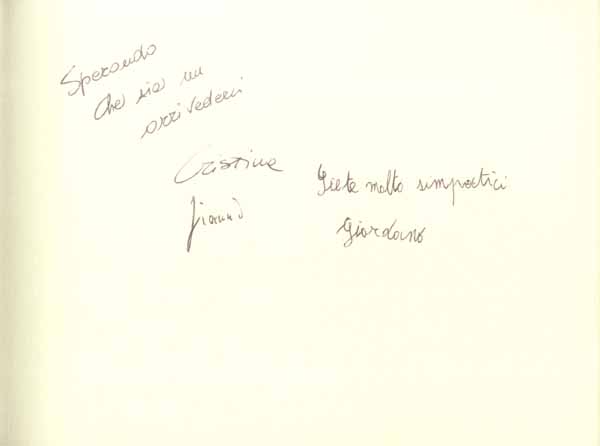 Sperando
che sia un
arrivederci
Cristina
Gianni
Siete molto simpatici
Giordano